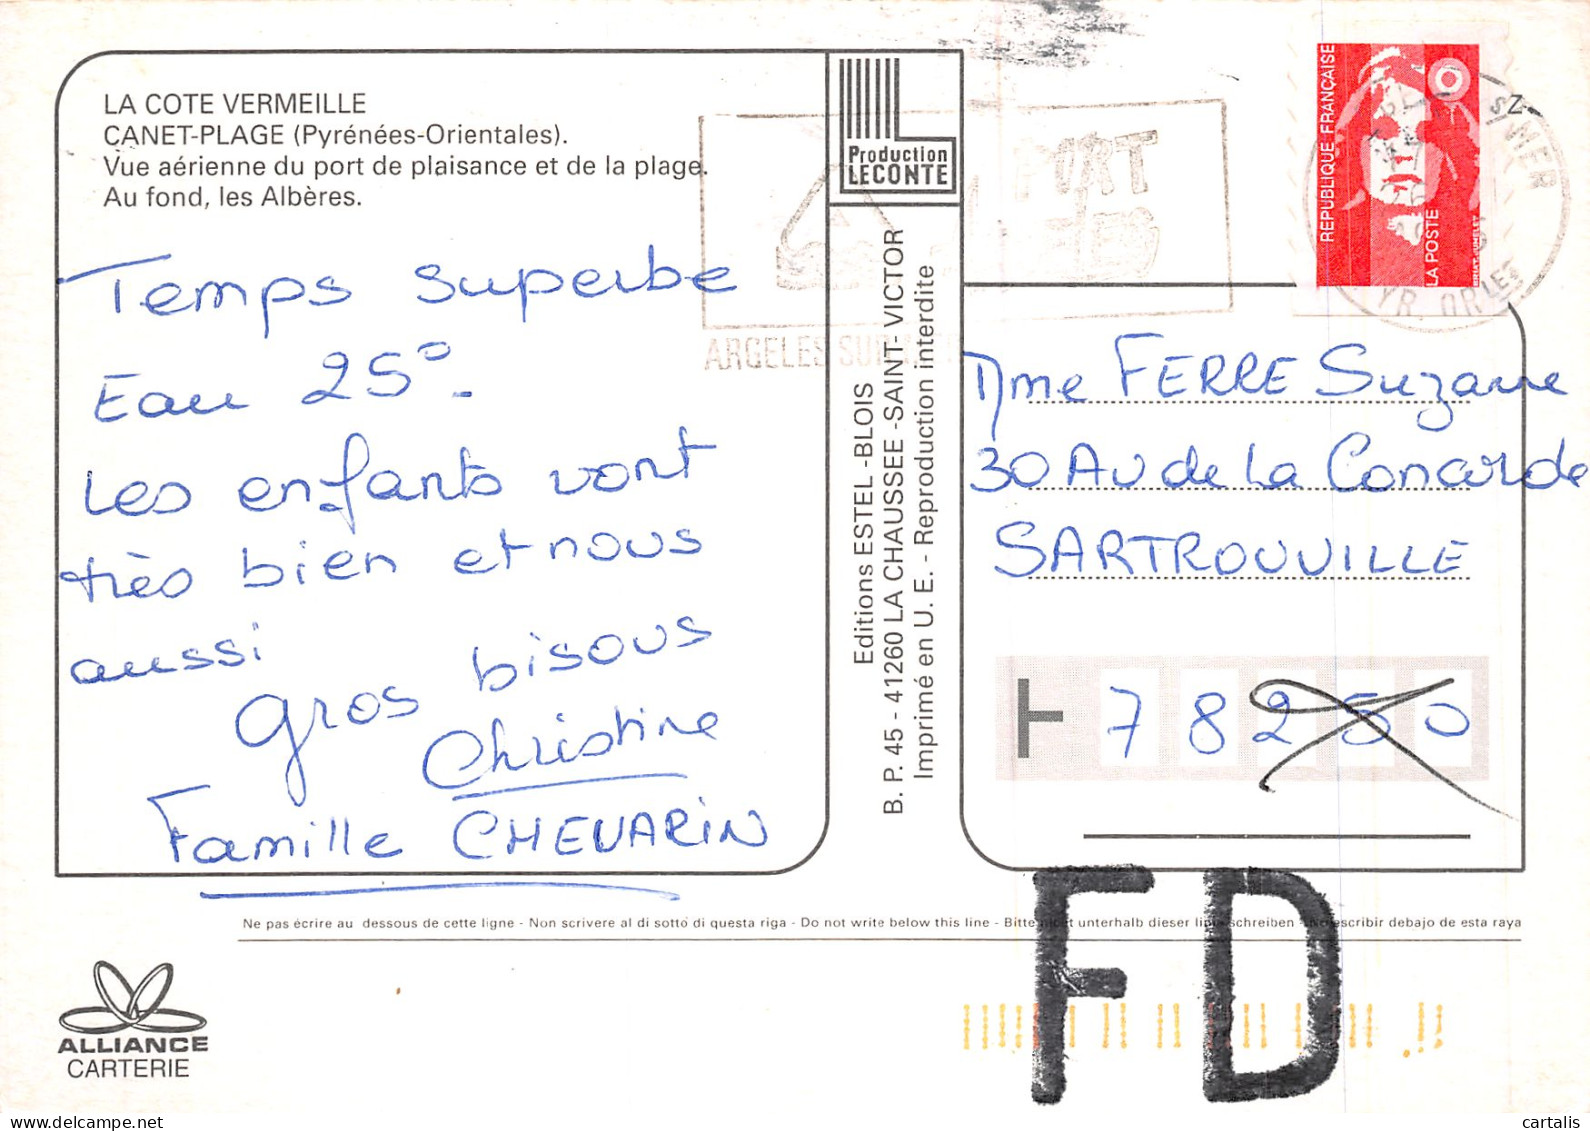 LA COTE VERMEILLE
CANET-PLAGE (Pyrénées-Orientales).
Vue aérienne du port de plaisance et de la plage.
Au fond, les Albères.
Temps superbe
Eau 25° -
Les enfants vont
très bien et nous
aussi
gros bisous
Christine
Famille CHEVARIN
Production
LECONTE
Editions ESTEL -BLOIS
B. P. 45 - 41260 LA CHAUSSEE -SAINT- VICTOR
Imprimé en U. E. - Reproduction interdite
PORT
ARGELES SUR
REPUBLIQUE FRANÇAISE
LA POSTE
S/MER
PYR. ORLES
Mme FERRE Suzanne
30 Av de La Concorde
SARTROUVILLE
78250
Ne pas écrire au dessous de cette ligne - Non scrivere al di sotto di questa riga - Do not write below this line - Bitte nicht unterhalb dieser linie schreiben - No escribir debajo de esta raya
FD
ALLIANCE
CARTERIE
cartalis
www.delcampe.net